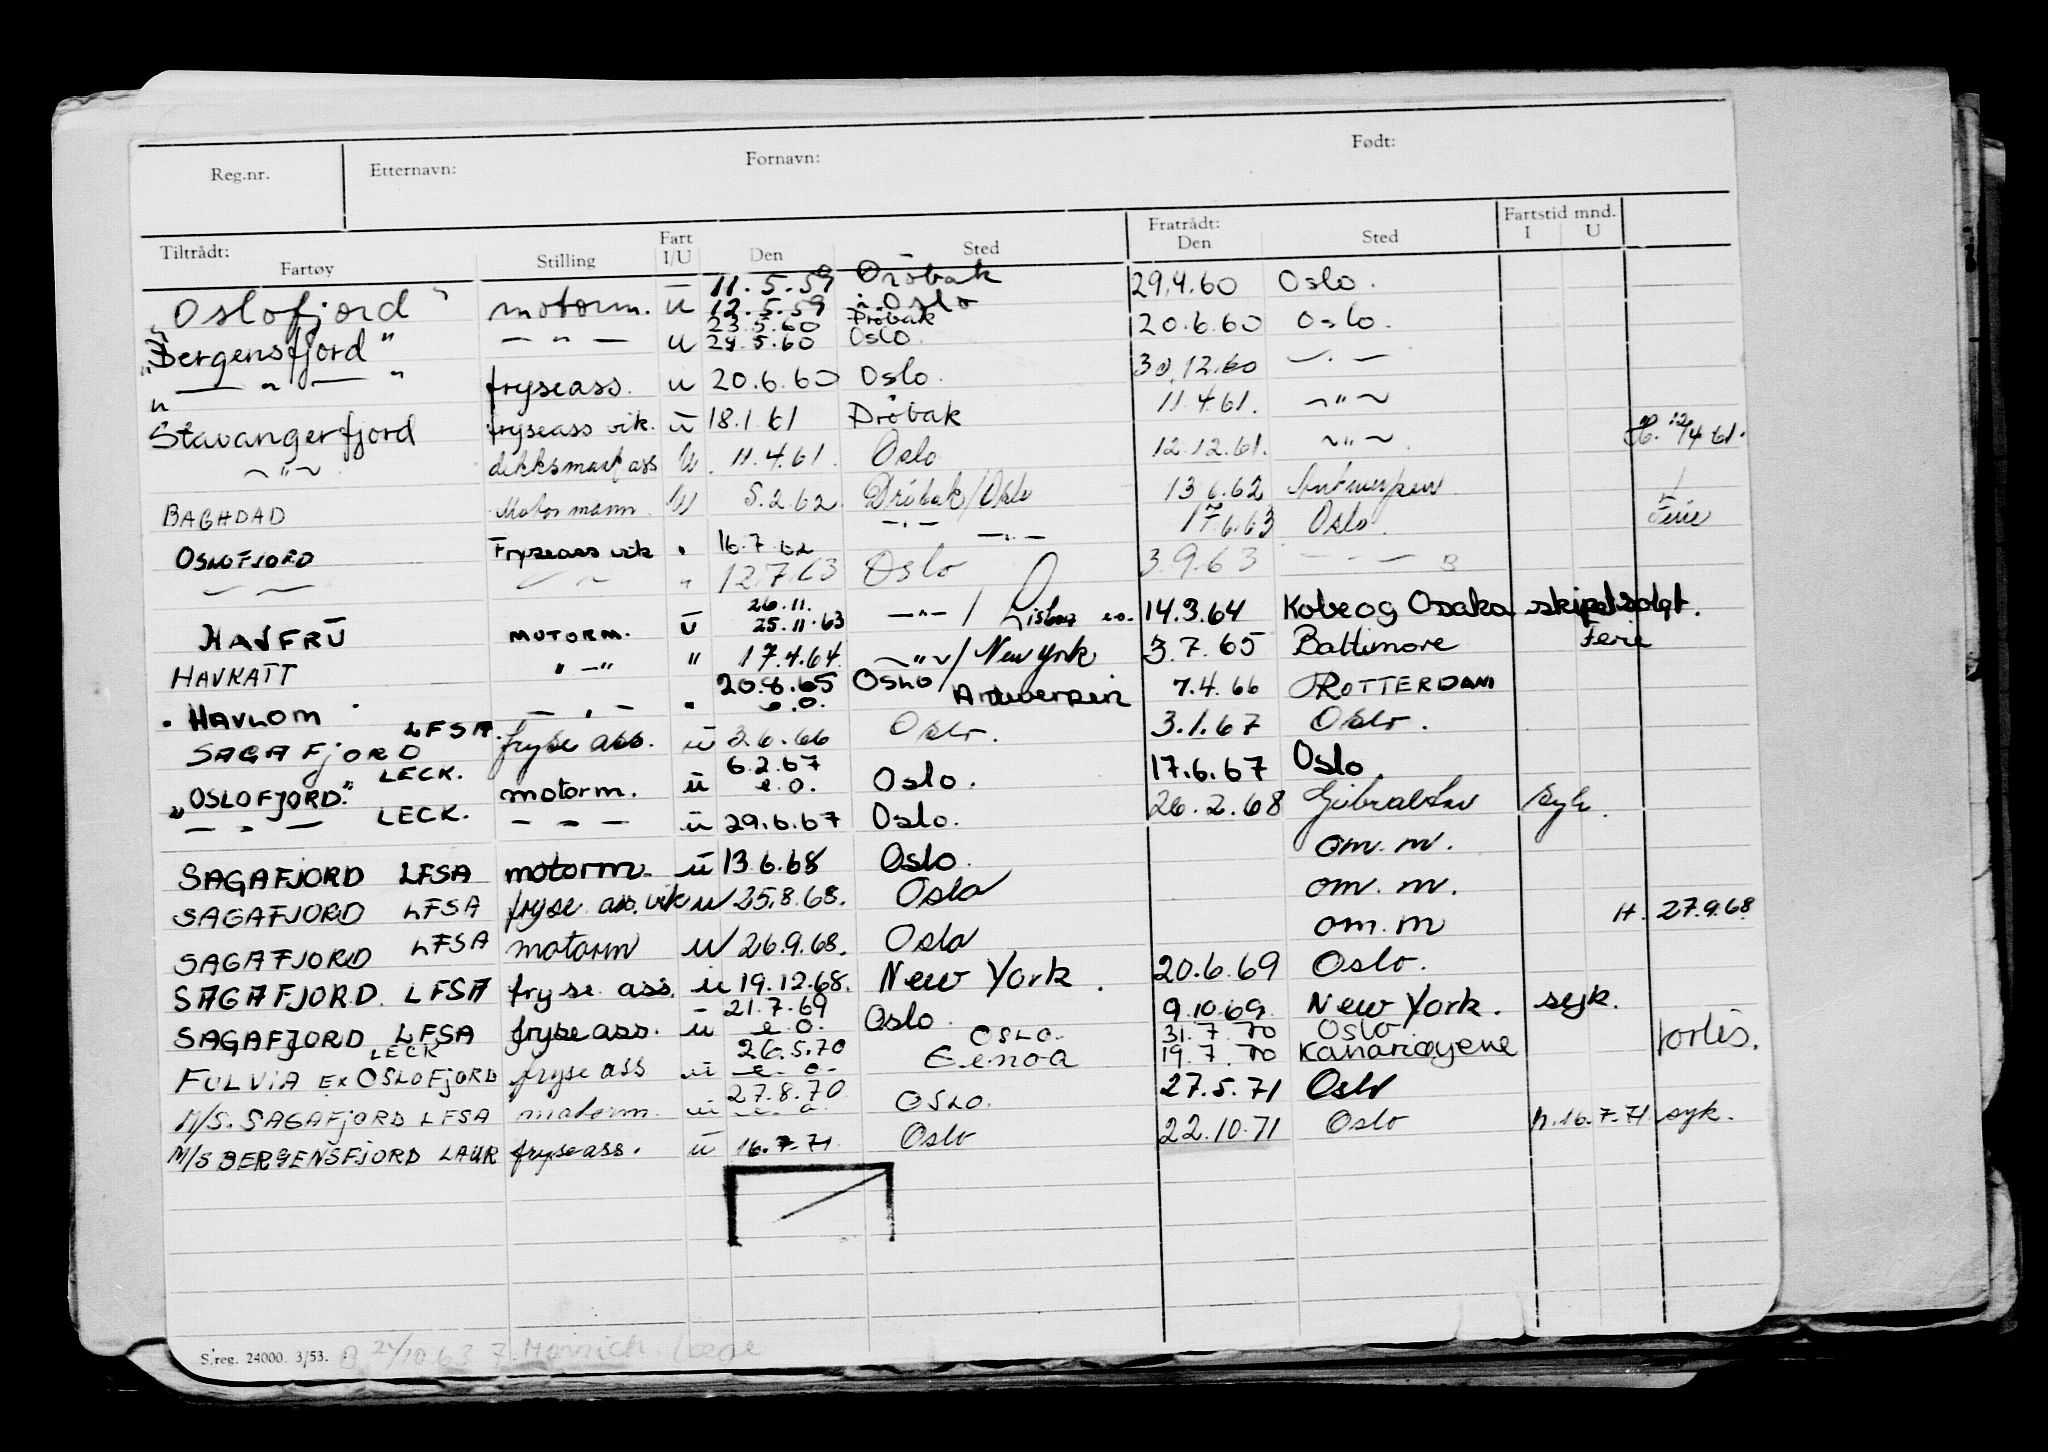 Reg.nr. Etternavn: Fornavn: Født:
Tiltrådt: Fratrådt: Fartstid mnd.
Fartøy Stilling Fart I/U Den Sted Den Sted I U
11.5.59 Drøbak
"Oslofjord" motorm. u 12.5.59 Oslo 29.4.60 Oslo.
23.5.60 Drøbak
"Bergensfjord" — " — u 24.5.60 Oslo. 20.6.60 Oslo.
" — " — " fryseass. u 20.6.60 Oslo. 30.12.60 — " —
Stavangerfjord fryseass vik. u 18.1.61 Drøbak 11.4.61. — " —
— " — ass U. 11.4.61. Oslo 12.12.61. — " — 12/4 61.
BAGHDAD Motormann U 5.2.62. Drøbak/Oslo 13.6.62 Antwerpen
OSLOFJORD Fryseass vik " 16.7.62 — " — 17.6.63 Oslo. Ferie
— — — " — " 12.7.63 Oslo 3.9.63 — " —
26.11.
HAVFRU MOTORM. U 25.11.63 — " — / Lisboa e.o. 14.3.64 Kobe og Osaka skipet solgt.
HAVKATT " — " " 17.4.64. — " — / New York 3.7.65 Baltimore Ferie
"HAVLOM" — " — " 20.8.65 e.o. OSLO Antwerpen 7.4.66 ROTTERDAM
SAGAFJORD LFSA. fryse ass. u 3.6.66 Oslo. 3.1.67 Oslo.
"OSLOFJORD." LECK. motorm. u 6.2.67 e.o. Oslo. 17.6.67 Oslo.
— " — LECK. — " — u 29.6.67 Oslo. 26.2.68 Gibraltar syk.
SAGAFJORD LFSA motorm. u 13.6.68 Oslo. om. m.
SAGAFJORD LFSA fryse ass. vik u 25.8.68. Oslo om. m.
SAGAFJORD LFSA motorm u 26.9.68. Oslo om. m H. 27.9.68
SAGAFJORD. LFSA fryse ass. u 19.12.68. New York. 20.6.69 Oslo.
SAGAFJORD LFSA fryseass. u 21.7.69 e.o. Oslo. 9.10.69. New York. syk.
FULVIA EX OSLOFJORD LECK fryseass u 26.5.70 e.o. OSLO. Genoa 31.7.70 Oslo 19.7.70 Kanariøyene forlis.
M/S. SAGAFJORD LFSA motorm. u 27.8.70 e.o. OSLO. 27.5.71 Oslo
M/S BERGENSFJORD LAUR fryseass. u 16.7.71 Oslo 22.10.71 Oslo h. 16.7.71 syk.
S.reg. 24000. 3/53.